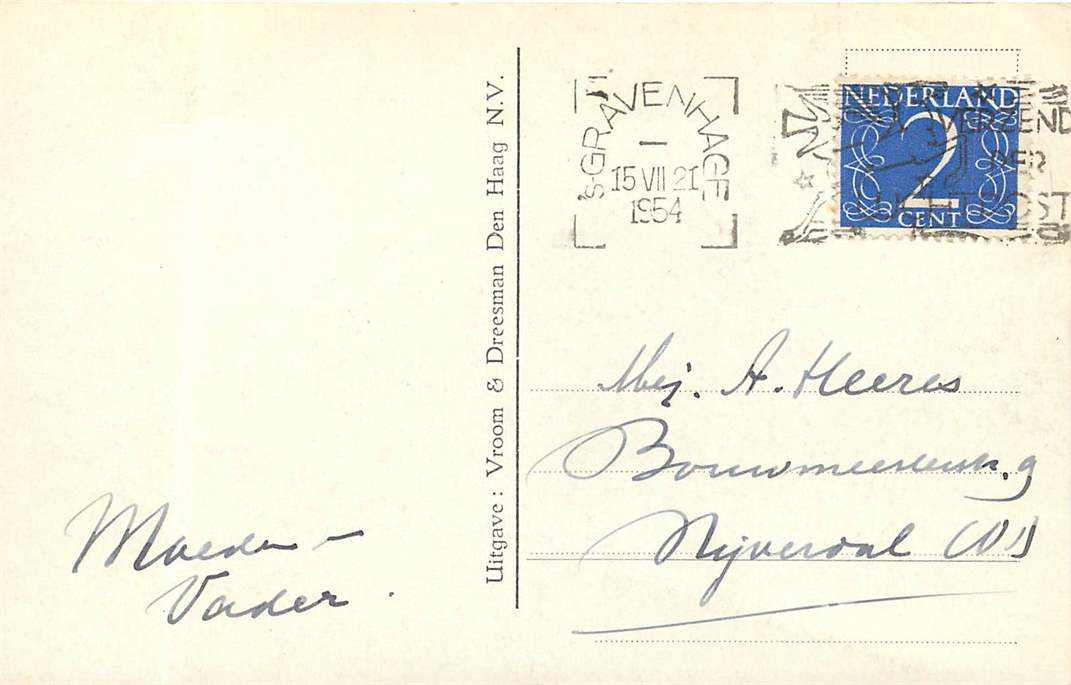 Moeder –
Vader.
Uitgave: Vroom & Dreesman Den Haag N.V.
'S GRAVENHAGE
15 VII 21
1954
VERZEND
PER
LUCHTPOST
NEDERLAND
2
CENT
Mej. A. Heeres
9
Nijverdal (O)